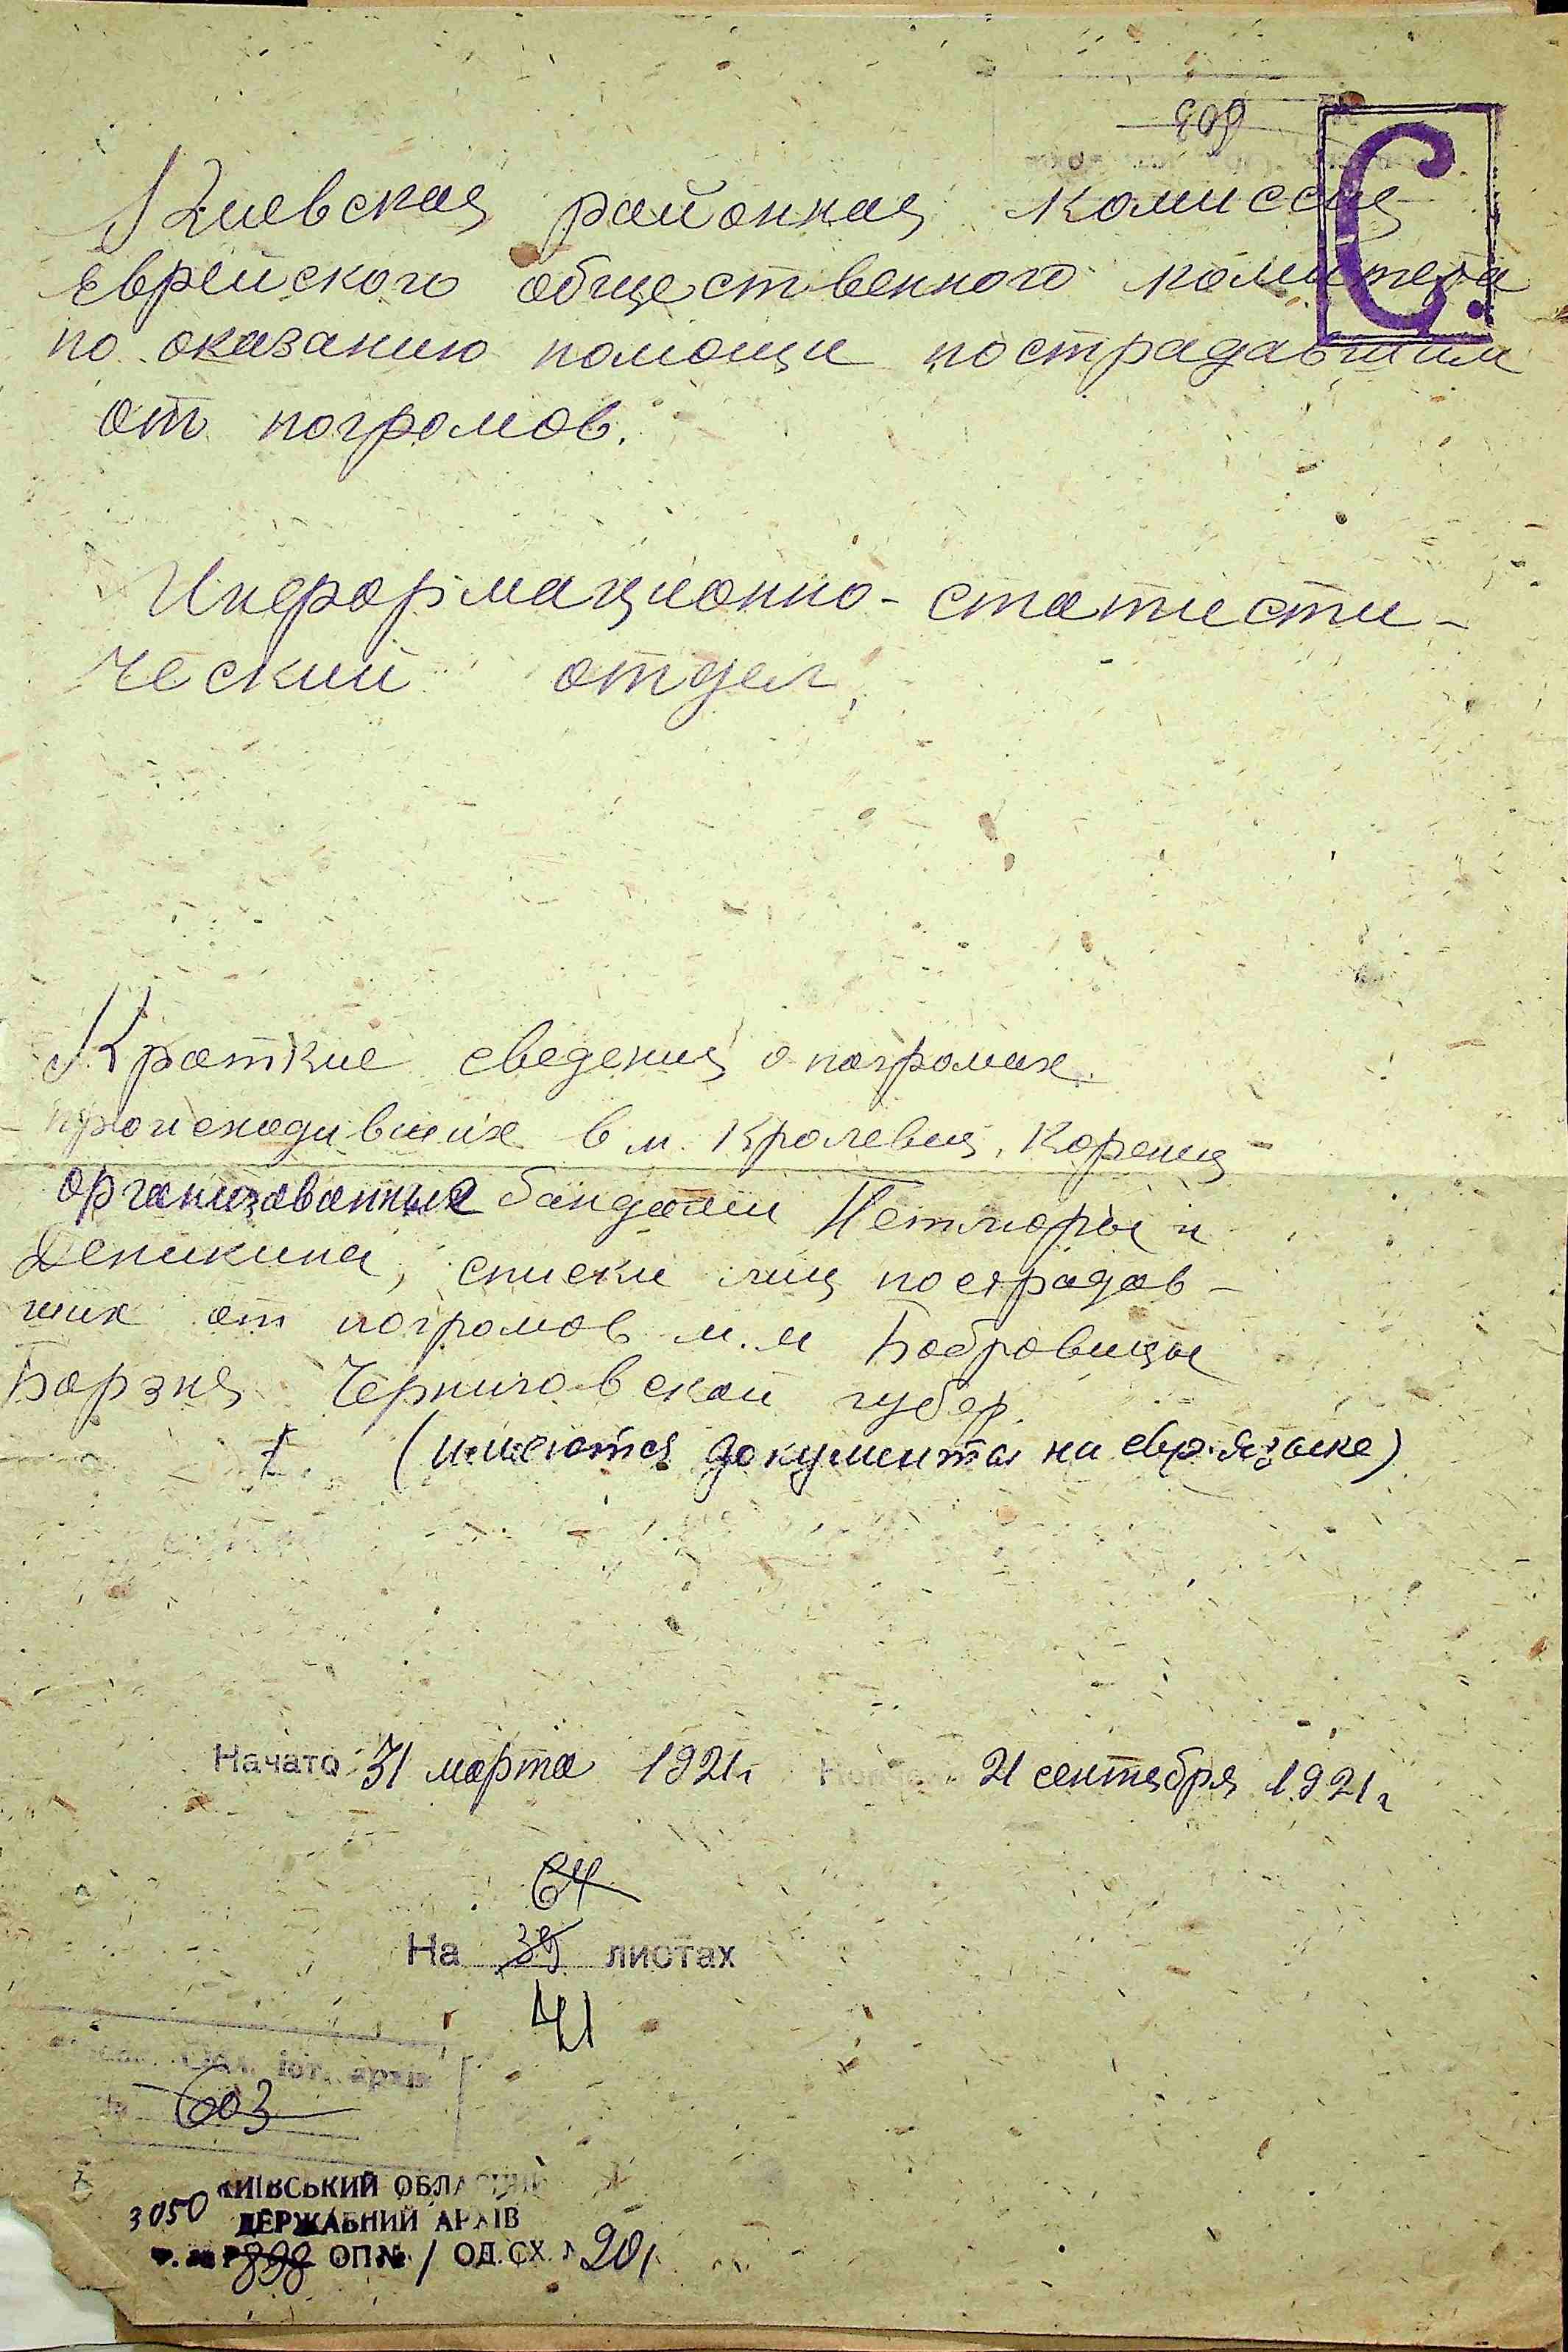 603
С.
Киевская районная комиссия
Еврейского общественного комитета
по оказанию помощи пострадавшим
от погромов.
Информационно-статисти-
ческий отдел,
Краткие сведения о погромах
происходивших в м. Кролевец, Корец
организованных бандами Петлюры и
Деникина, списки лиц пострадав-
ших от погромов м.м Бобровицы
Борзня Черниговской губер.
(имеются документы на евр. языке)
Начато 31 марта 1921 г. 21 сентября 1921 г
64
На 39 листах
41
іст. архів
603
КИЇВСЬКИЙ ОБЛАСНИЙ
3050 ДЕРЖАВНИЙ АРХІВ
Р 898 ОП № 1 ОД. СХ. № 201